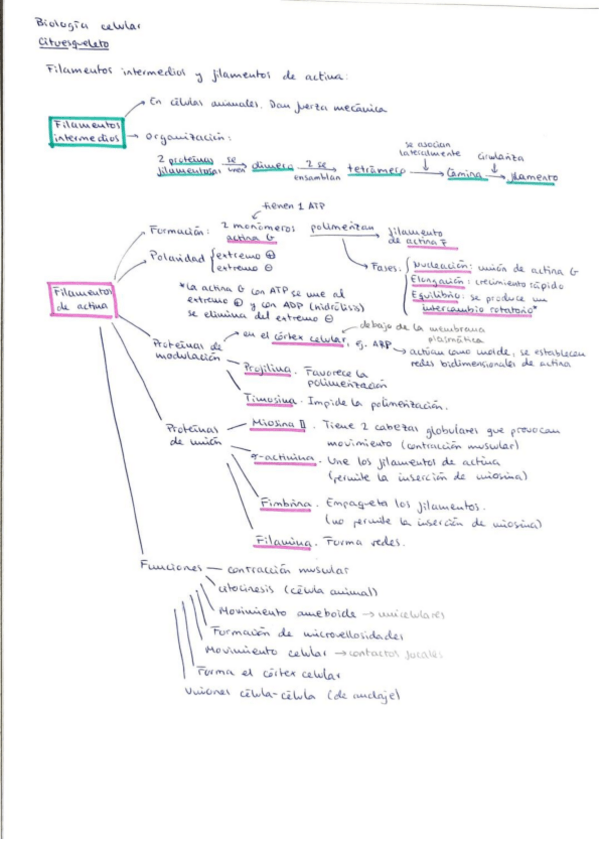 Biología celular
Citoesqueleto
Filamentos intermedios y filamentos de actina:
Filamentos intermedios
En células animales. Dan fuerza mecánica
Organización:
2 proteínas filamentosas se unen dímero 2 se ensamblan tetrámero se asocian lateralmente Lámina circulariza filamento
tienen 1 ATP
Formación: 2 monómeros actina G polimerizan filamento de actina F
Fases: Nucleación: unión de actina G
Elongación: crecimiento rápido
Equilibrio: se produce un intercambio rotatorio*
Filamentos de actina
Polaridad extremo ⊕
extremo ⊖
*La actina G con ATP se une al
extremo ⊕ y con ADP (hidrólisis)
se elimina del extremo ⊖
Proteínas de modulación
en el córtex celular, ej. ARP
debajo de la membrana plasmática
actúan como molde, se establecen
redes bidimensionales de actina
Profilina. Favorece la
polimerización
Timosina. Impide la polimerización.
Proteínas de unión
Miosina II. Tiene 2 cabezas globulares que provocan
movimiento (contracción muscular)
α-actinina. Une los filamentos de actina
(permite la inserción de miosina)
Fimbrina. Empaqueta los filamentos.
(no permite la inserción de miosina)
Filamina. Forma redes.
Funciones contracción muscular
citocinesis (célula animal)
Movimiento ameboide → unicelulares
Formación de microvellosidades
Movimiento celular → contactos focales
Forma el córtex celular
Uniones célula-célula (de anclaje)